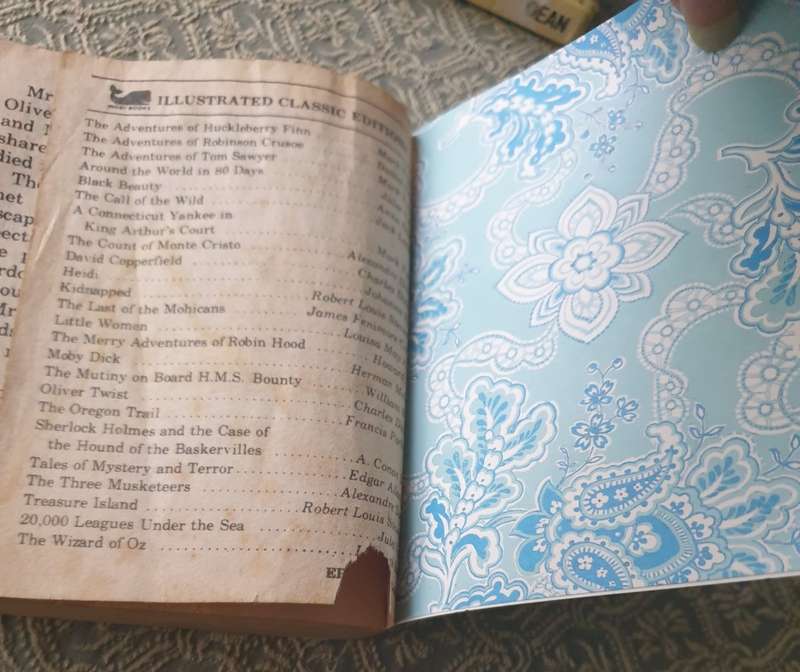 Mr
Olive
and
share
died
Th
MOBY BOOKS
ILLUSTRATED CLASSIC EDITIONS
The Adventures of Huckleberry Finn
The Adventures of Robinson Crusoe
The Adventures of Tom Sawyer
Around the World in 80 Days
Black Beauty
The Call of the Wild
A Connecticut Yankee in
King Arthur's Court
The Count of Monte Cristo
David Copperfield ........ Charles
Heidi
Kidnapped ........ Robert Louis
The Last of the Mohicans ........ James Fenimore
Little Women ........ Louisa
The Merry Adventures of Robin Hood
Moby Dick ........ Herman
The Mutiny on Board H.M.S. Bounty ........ William
Oliver Twist ........ Charles
The Oregon Trail ........ Francis
Sherlock Holmes and the Case of
the Hound of the Baskervilles ........ A.
Tales of Mystery and Terror ........ Edgar
The Three Musketeers ........ Alexandre
Treasure Island ........ Robert Louis
20,000 Leagues Under the Sea
The Wizard of Oz
EAN